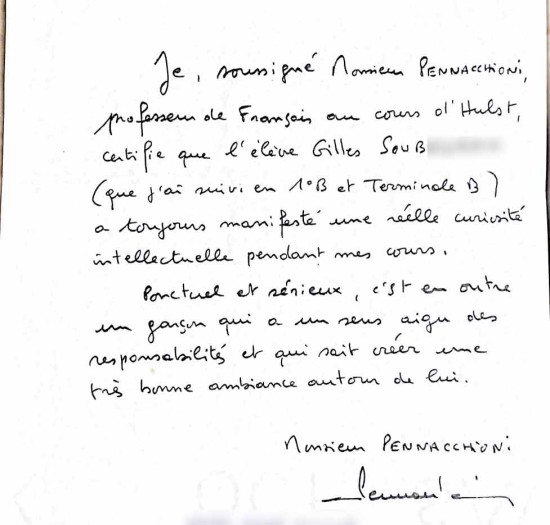 Je, soussigné Monsieur PENNACCHIONI,
professeur de Français au cours d'Hulst,
certifie que l'élève Gilles SouB
(que j'ai suivi en 1°B et Terminale B)
a toujours manifesté une réelle curiosité
intellectuelle pendant mes cours.
Ponctuel et sérieux, c'st en outre
un garçon qui a un sens aigu des
responsabilités et qui sait créer une
très bonne ambiance autour de lui.
Monsieur PENNACCHIONI